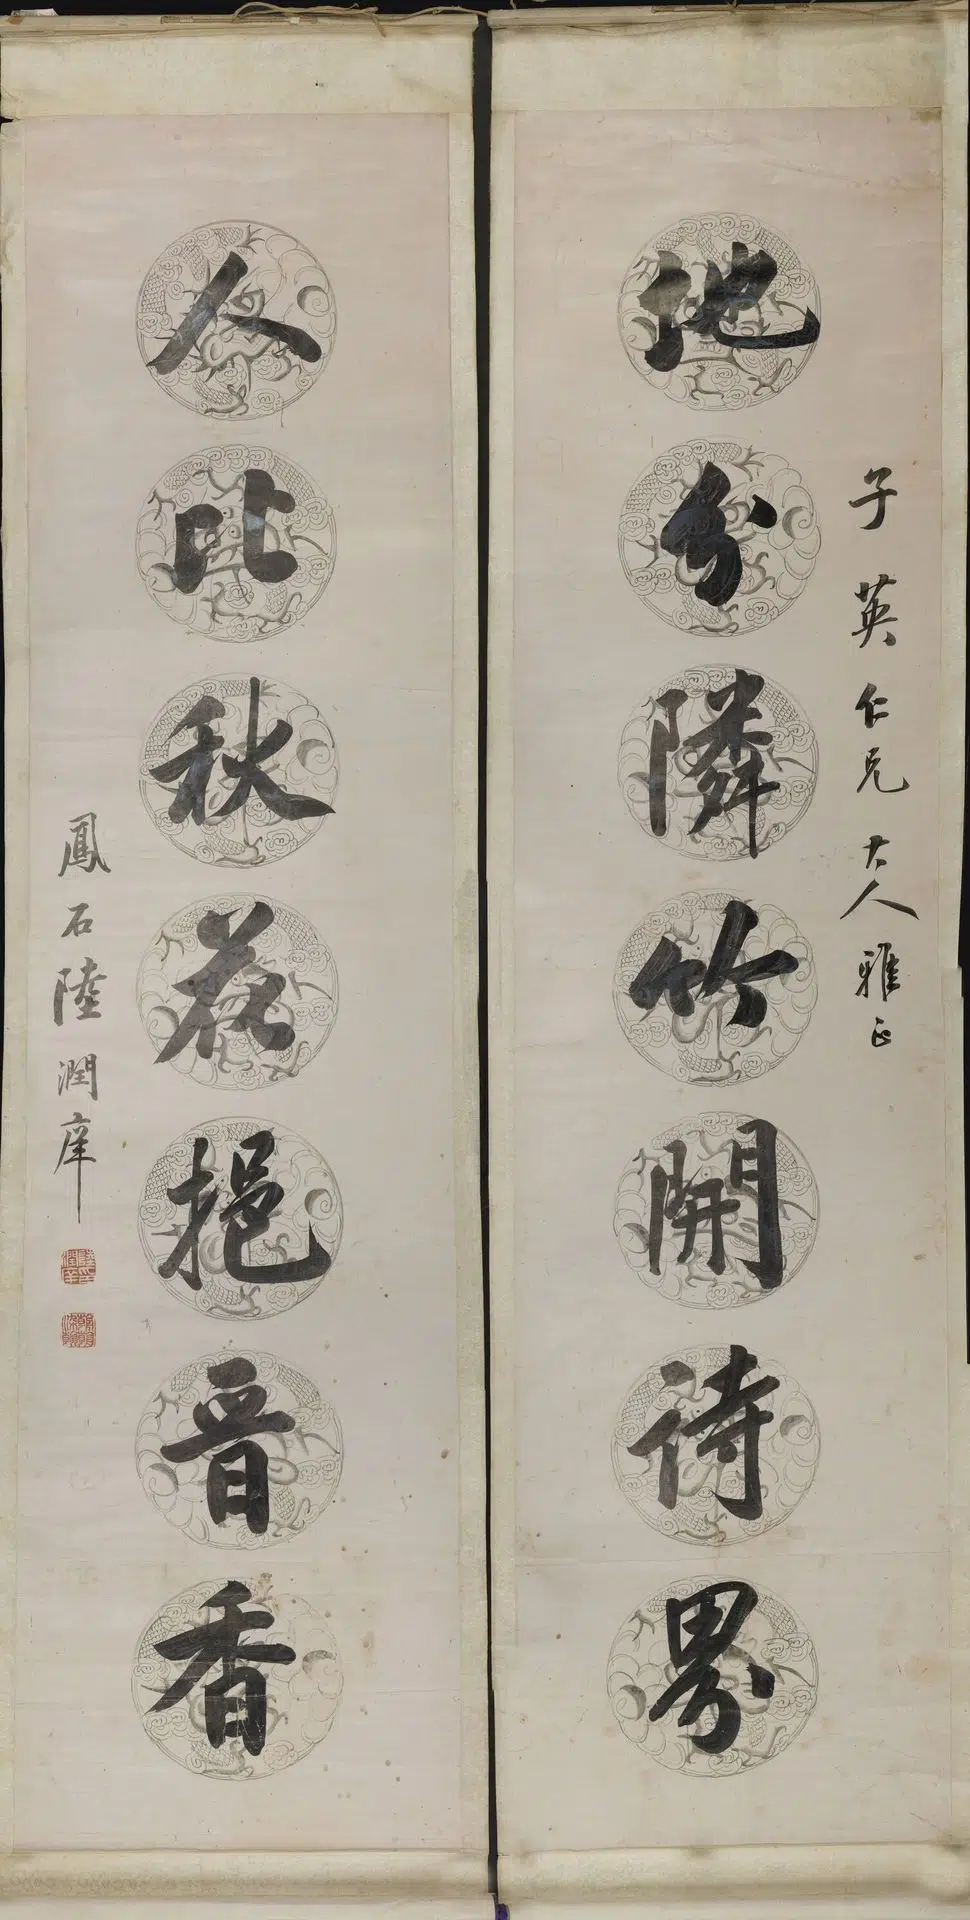 地分隣竹開詩界
子英仁兄大人雅正
人比秋花挹晉香
鳳石陸潤庠